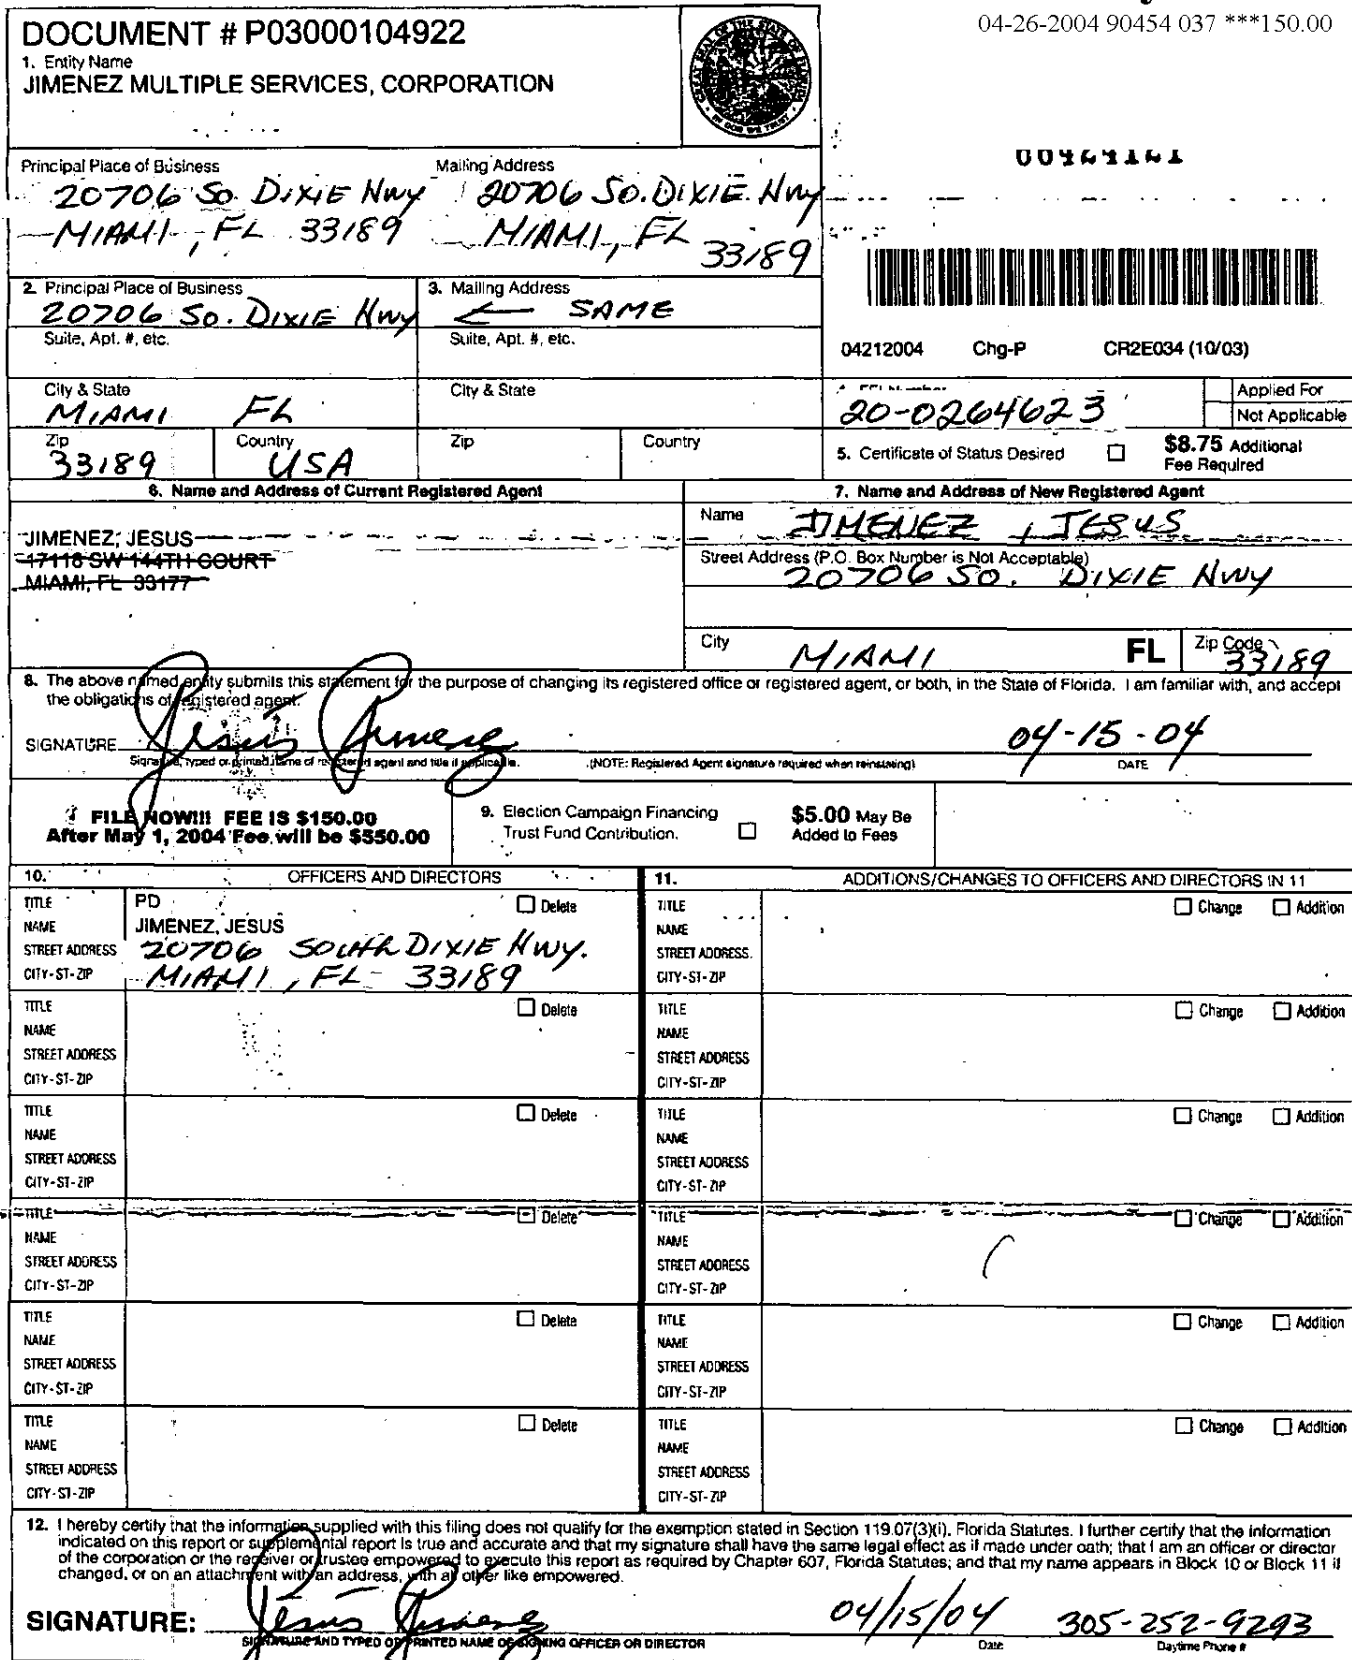 04-26-2004 90454 037 ***150.00
DOCUMENT # P03000104922
1. Entity Name
JIMENEZ MULTIPLE SERVICES, CORPORATION
Principal Place of Business
20706 So. DIXIE HWY
MIAMI, FL 33189
Mailing Address
20706 So. DIXIE HWY
MIAMI, FL 33189
2. Principal Place of Business
20706 So. DIXIE HWY
3. Mailing Address
← SAME
Suite, Apt. #, etc.
Suite, Apt. #, etc.
04212004 Chg-P CR2E034 (10/03)
City & State
MIAMI FL
City & State
20-0264623
Applied For
Not Applicable
Zip
33189
Country
USA
Zip
Country
5. Certificate of Status Desired ☐ $8.75 Additional
Fee Required
6. Name and Address of Current Registered Agent
JIMENEZ, JESUS
17118 SW 144TH COURT
MIAMI, FL 33177
7. Name and Address of New Registered Agent
Name JIMENEZ, JESUS
Street Address (P.O. Box Number is Not Acceptable)
20706 SO. DIXIE HWY
City MIAMI FL Zip Code 33189
8. The above named entity submits this statement for the purpose of changing its registered office or registered agent, or both, in the State of Florida. I am familiar with, and accept
the obligations of registered agent.
SIGNATURE Jesús Jimenez 04-15-04
Signature, typed or printed name of registered agent and title if applicable. (NOTE: Registered Agent signature required when reinstating) DATE
FILE NOW!!! FEE IS $150.00
After May 1, 2004 Fee will be $550.00
9. Election Campaign Financing
Trust Fund Contribution. ☐
$5.00 May Be
Added to Fees
10. OFFICERS AND DIRECTORS
11. ADDITIONS/CHANGES TO OFFICERS AND DIRECTORS IN 11
TITLE PD ☐ Delete
NAME JIMENEZ, JESUS
STREET ADDRESS 20706 SOUTH DIXIE HWY.
CITY-ST-ZIP MIAMI, FL 33189
TITLE ☐ Change ☐ Addition
NAME
STREET ADDRESS
CITY-ST-ZIP
TITLE ☐ Delete
NAME
STREET ADDRESS
CITY-ST-ZIP
TITLE ☐ Change ☐ Addition
NAME
STREET ADDRESS
CITY-ST-ZIP
TITLE ☐ Delete
NAME
STREET ADDRESS
CITY-ST-ZIP
TITLE ☐ Change ☐ Addition
NAME
STREET ADDRESS
CITY-ST-ZIP
TITLE ☐ Delete
NAME
STREET ADDRESS
CITY-ST-ZIP
TITLE ☐ Change ☐ Addition
NAME
STREET ADDRESS
CITY-ST-ZIP
TITLE ☐ Delete
NAME
STREET ADDRESS
CITY-ST-ZIP
TITLE ☐ Change ☐ Addition
NAME
STREET ADDRESS
CITY-ST-ZIP
TITLE ☐ Delete
NAME
STREET ADDRESS
CITY-ST-ZIP
TITLE ☐ Change ☐ Addition
NAME
STREET ADDRESS
CITY-ST-ZIP
12. I hereby certify that the information supplied with this filing does not qualify for the exemption stated in Section 119.07(3)(i), Florida Statutes. I further certify that the information
indicated on this report or supplemental report is true and accurate and that my signature shall have the same legal effect as if made under oath; that I am an officer or director
of the corporation or the receiver or trustee empowered to execute this report as required by Chapter 607, Florida Statutes; and that my name appears in Block 10 or Block 11 if
changed, or on an attachment with an address, with all other like empowered.
SIGNATURE: Jesús Jimenez 04/15/04 305-252-9293
SIGNATURE AND TYPED OR PRINTED NAME OF SIGNING OFFICER OR DIRECTOR Date Daytime Phone #